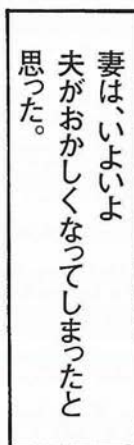 妻は、いよいよ
夫がおかしくなってしまったと
思った。